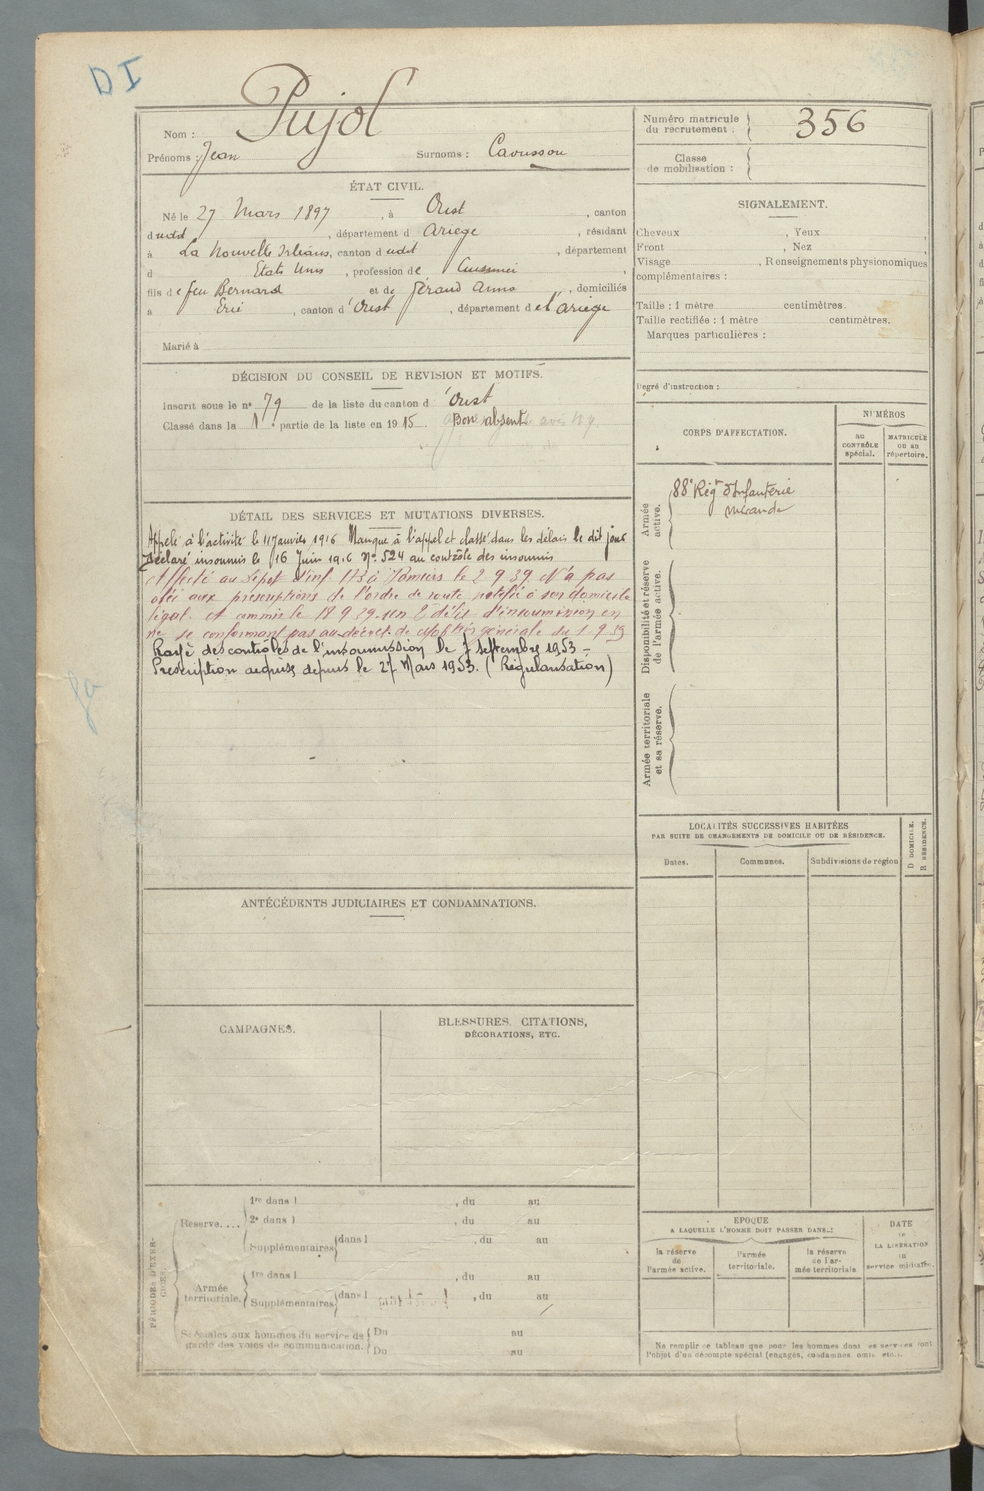 DI
Nom : Pujol
Prénoms : Jean Surnoms : Caousson
Numéro matricule du recrutement : 356
Classe de mobilisation :
ÉTAT CIVIL.
Né le 27 Mars 1897, à Oust, canton
dudit, département d Ariège, résidant
à La Nouvelle Orléans, canton dudit, département
d Etats Unis, profession de Cuisinier,
fils de feu Bernard et de Géraud Anna, domiciliés
à Ercé, canton d'Oust, département de l'Ariège
Marié à
SIGNALEMENT.
Cheveux , Yeux
Front , Nez
Visage , Renseignements physionomiques
complémentaires :
Taille : 1 mètre centimètres.
Taille rectifiée : 1 mètre centimètres.
Marques particulières :
Degré d'instruction :
DÉCISION DU CONSEIL DE REVISION ET MOTIFS.
Inscrit sous le n° 79 de la liste du canton d'Oust
Classé dans la 1e partie de la liste en 1915. Bon absent
CORPS D'AFFECTATION.
NUMÉROS
AU CONTRÔLE spécial.
MATRICULE OU AU répertoire.
Armée active.
88e Régt d'Infanterie
Mirande
Disponibilité et réserve de l'armée active.
Armée territoriale et sa réserve.
DÉTAIL DES SERVICES ET MUTATIONS DIVERSES.
Appelé à l'activité le 11 Janvier 1916 Manque à l'appel et classé dans les délais le dit jour
Déclaré insoumis le 16 Juin 1916 N° 524 au contrôle des insoumis
Affecté au Dépôt d'inf 173 à Pamiers le 2 9 39 N'a pas
obéi aux prescriptions de l'ordre de route notifié à son domicile
légal et commis le 18 9 39 un 2e délit d'insoumission en
ne se conformant pas au décret de mobon générale du 1 9 39
Rayé des contrôles de l'insoumission le 7 septembre 1953 -
Prescription acquise depuis le 27 Mars 1953. (Régularisation)
LOCALITÉS SUCCESSIVES HABITÉES
PAR SUITE DE CHANGEMENTS DE DOMICILE OU DE RÉSIDENCE.
Dates. Communes. Subdivisions de région D DOMICILE. R RÉSIDENCE.
ANTÉCÉDENTS JUDICIAIRES ET CONDAMNATIONS.
CAMPAGNES.
BLESSURES, CITATIONS,
DÉCORATIONS, ETC.
PÉRIODES D'EXERCICES.
Réserve....
1re dans l , du au
2e dans l , du au
Supplémentaires dans l , du au
Armée territoriale.
1re dans l , du au
Supplémentaires dans l , du au
Spéciales aux hommes du service de
garde des voies de communication.
Du au
Du au
EPOQUE
A LAQUELLE L'HOMME DOIT PASSER DANS :
la réserve de l'armée active.
l'armée territoriale.
la réserve de l'armée territoriale
DATE
DE
LA LIBÉRATION
DU
service militaire.
Ne remplir ce tableau que pour les hommes dont les services font
l'objet d'un décompte spécial (engagés, condamnés, omis, etc.).